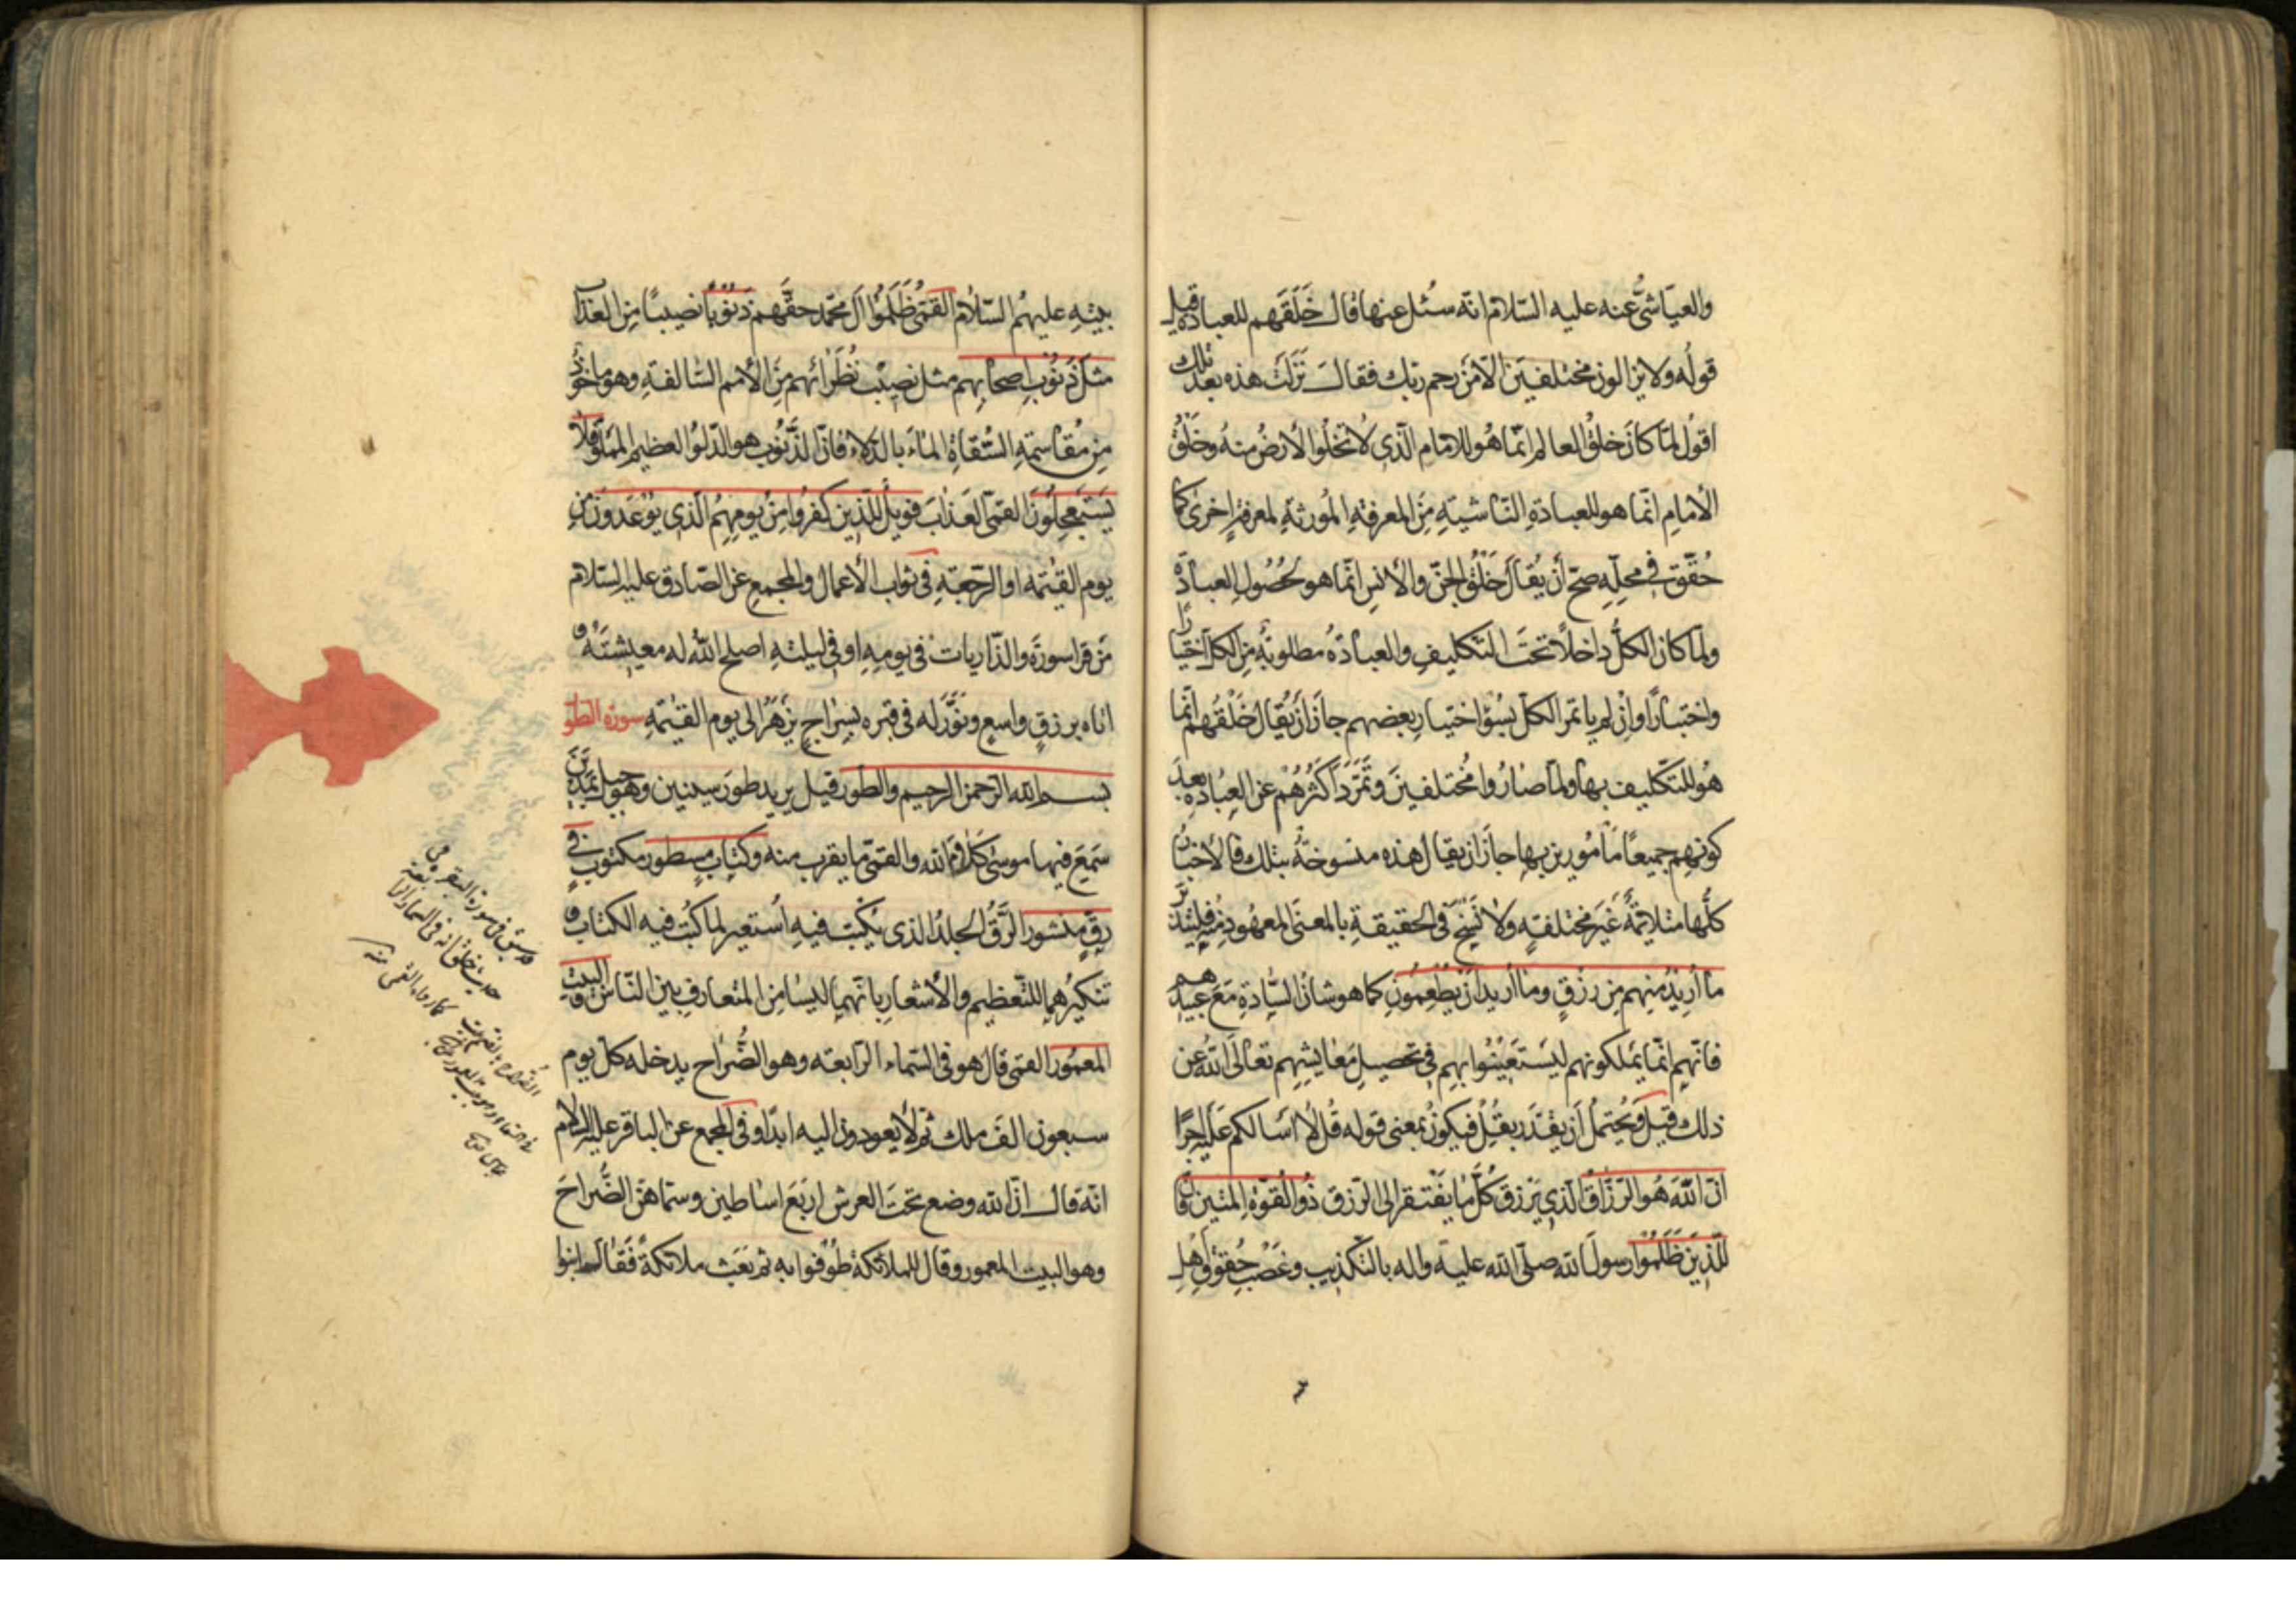 والعيّاشيّ عنه عليه السّلام انّه سُئل عنها قال خَلَقَهم للعبادة قيل
قوله ولا يزالون مختلفين الّا مَن رحم ربّك فقال نَزَلَت هذه بعد تلك
اقول لمّا كانَ خلقُ العالم انّما هُو للامام الّذي لا تخلُوا الأرضُ منهُ وخَلقُ
الأمام انّما هو للعبادةِ النّاشيةِ مِنَ المعرفةِ المُورثةِ لمعرفةٍ اخرىٰ كما
حُقّق في محلّه صحّ أن يُقال خَلقُ الجنّ والأنس انّما هو لحُصُول العبادة
ولمّا كان الكلُّ داخلاً تحتَ التكليفِ والعبادةُ مطلوبةً مِنَ الكلّ اختيارًا
واختبارًا وان لم يأتمر الكلّ بسُوء اختيار بعضهم جازَ أن يُقال خَلْقُهُم انّما
هُو للتّكليف بها ولمّا صارُوا مُختلفينَ وتَمَرَّدَ أكثرُهُم عن العبادة بعدَ
كونهم جميعًا مأمُورين بها جازَ ان يقال هذه منسوخةٌ بتلك فالأخبارُ
كلُّها متلائمةٌ غَيرَ مختلفةٍ ولا نَسخَ في الحقيقةِ بالمعنَى المعهُود منه فليتدبّر
ما أُريدُ مِنهم مِن رزقٍ وما أُريد أن يُطعِمُونِ كما هو شان السّادةِ مَعَ عَبيدهم
فانّهم انّما يَملكونهم ليَستَعِينُوا بهم في تحصيل مَعايشهم تعالى اللهُ عن
ذلك قيلَ ويُحتملُ أن يُقدَّر بقُل فيكونُ بمعنى قوله قُل لا اسألكم عَلَيه أجرًا
انّ اللهَ هُو الرّزّاقُ الّذي يَرزق كُلَّ ما يَفتقر الى الرّزق ذُو القُوّةِ المتين فانّ
لِلّذينَ ظَلَمُوا رسولَ الله صلّى الله عليه واله بالتّكذيب وغَصب حُقوق أهل
بيته عليهمُ السّلام القمّي ظَلَمُوا آل محمّد حقَّهم ذَنُوبًا نصيبًا مِن العذاب
مثلَ ذَنُوب اصحابهم مثل نصيب نُظَرائهم مِنَ الأمم السّالفةِ وهو ماخوذ
مِن مُقاسمةِ السُّقاةِ الماءَ بالدّلاء فانّ الذَّنُوب هو الدّلوُ العظيم المملوّ فلا
يَستَعجِلُونِ القمّي العَذابَ فويلٌ للّذين كفرُوا مِن يومِهِمُ الّذي يُوعَدونَ مِن
يوم القيٰمة او الرّجعةِ في ثواب الأعمال والمجمع عن الصّادق عليه السّلام
مَن قرا سورَةَ والذّاريات في يومِهِ او في ليلتهِ اصلح اللهُ له معيشتَهُ و
اتاه برزقٍ واسعٍ ونَوَّرَ له في قبره بسراجٍ يَزهَرُ الى يوم القيٰمةِ سورة الطور
بسم الله الرّحمن الرحيم والطّور قيل يريد طورَ سينين وهو جبل بمَديَنَ
سَمِعَ فيها موسىٰ كَلامَ الله والقمّي ما يقرب منه وكتابٍ مسطورٍ مكتوبٍ في
رقٍّ منشورٍ الرَّقُّ الجلدُ الذي يُكتَب فيهِ استُعير لما كُتِب فيه الكتاب و
تنكيرُهما للتّعظيم والأشعار بانّهما ليسا مِن المتعارف بين النّاس والبيت
المعمُور القمّي قال هو في السّماء الرّابعة وهو الضُّراح يدخله كلّ يوم
سبعون الفَ ملك ثم لا يعودون اليه ابدًا وفي المجمع عن الباقر عليه السلام
انّه قال انّ الله وضع تحتَ العرش اربَعَ اساطين وسمّاهنّ الضُّراحَ
وهو البيت المعمور وقال للملائكة طُوفوا به ثم بَعَث ملائكةً فَقال ابنوا
في سورة البقرة
كما رواه القمي منه